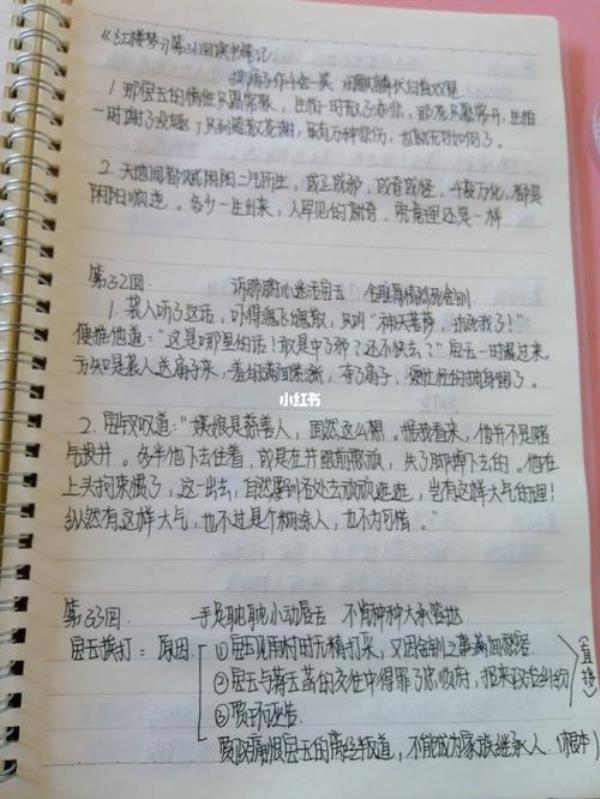 《红楼梦》第31回读书笔记
撕扇子作千金一笑 因麒麟伏白首双星
1. 那宝玉的情性只愿常聚，生怕一时散了添悲，那花只愿常开，生怕
一时谢了没趣；只到筵散花谢，虽有万种悲伤，也就无可如何了。
2. 天地间都赋阴阳二气所生，或正或邪，或奇或怪，千变万化，都是
阴阳顺逆。多少一生出来，人罕见的就奇，究竟理还是一样
第32回. 诉肺腑心迷活宝玉 含耻辱情烈死金钏
1. 袭人听了这话，吓得魂飞魄散，只叫“神天菩萨，坑死我了！”
便推他道：“这是哪里的话！敢是中了邪？还不快去？”宝玉一时醒过来，
方知是袭人送扇子来，羞的满面紫涨，夺了扇子，便忙忙的抽身跑了。
小红书
2. 宝钗叹道：“姨娘是慈善人，固然这么想。据我看来，他并不是赌
气投井。多半他下去住着，或是在井跟前憨顽，失了脚掉下去的。他在
上头拘束惯了，这一出去，自然要到各处去顽顽逛逛，岂有这样大气的理！
纵然有这样大气，也不过是个糊涂人，也不为可惜。”
第33回. 手足耽耽小动唇舌 不肖种种大承笞挞
宝玉挨打：原因 ①宝玉见雨村时无精打采，又因金钏之事满面愁容
②宝玉与蒋玉菡的交往中得罪了忠顺府，招来政治纠纷
③贾环诬告.
(直接)
贾政痛恨宝玉的离经叛道，不能成为家族继承人. (根本)